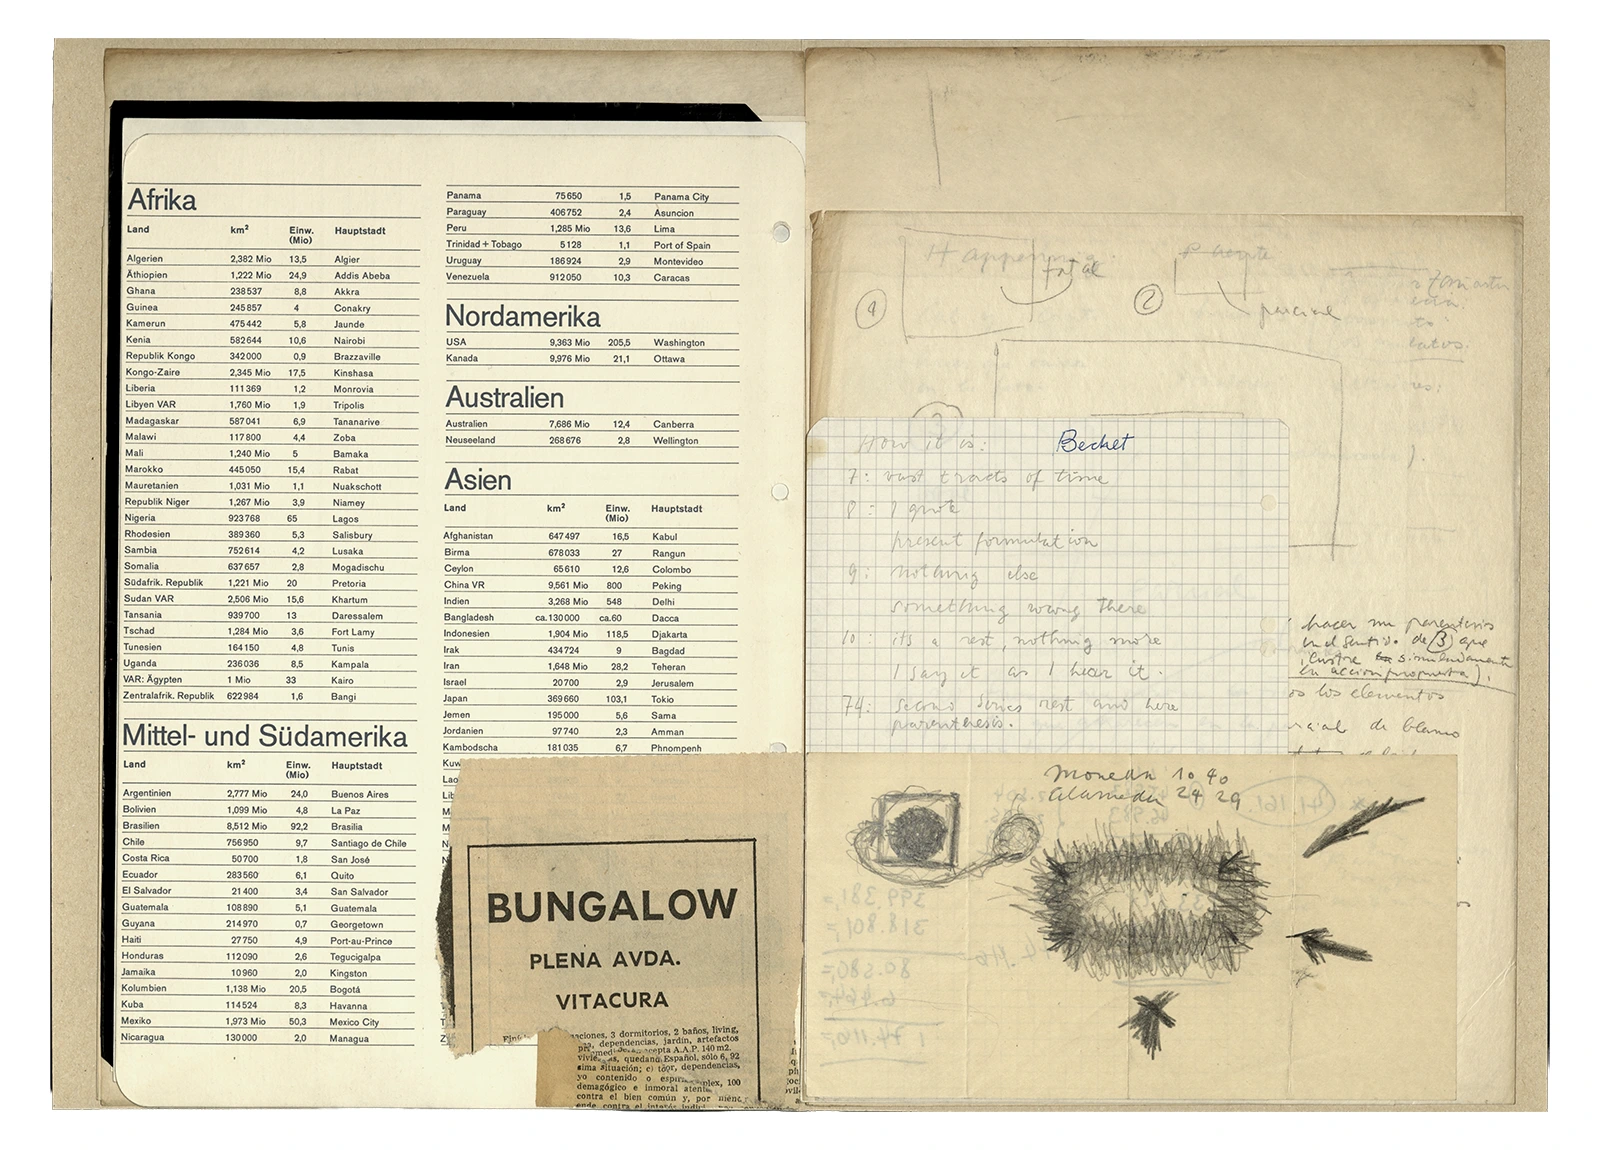 Afrika
Land km² Einw. (Mio) Hauptstadt
Algerien 2,382 Mio 13,5 Algier
Äthiopien 1,222 Mio 24,9 Addis Abeba
Ghana 238537 8,8 Akkra
Guinea 245857 4 Conakry
Kamerun 475442 5,8 Jaunde
Kenia 582644 10,6 Nairobi
Republik Kongo 342000 0,9 Brazzaville
Kongo-Zaire 2,345 Mio 17,5 Kinshasa
Liberia 111369 1,2 Monrovia
Libyen VAR 1,760 Mio 1,9 Tripolis
Madagaskar 587041 6,9 Tananarive
Malawi 117800 4,4 Zoba
Mali 1,240 Mio 5 Bamaka
Marokko 445050 15,4 Rabat
Mauretanien 1,031 Mio 1,1 Nuakschott
Republik Niger 1,267 Mio 3,9 Niamey
Nigeria 923768 65 Lagos
Rhodesien 389360 5,3 Salisbury
Sambia 752614 4,2 Lusaka
Somalia 637657 2,8 Mogadischu
Südafrik. Republik 1,221 Mio 20 Pretoria
Sudan VAR 2,506 Mio 15,6 Khartum
Tansania 939700 13 Daressalem
Tschad 1,284 Mio 3,6 Fort Lamy
Tunesien 164150 4,8 Tunis
Uganda 236036 8,5 Kampala
VAR: Ägypten 1 Mio 33 Kairo
Zentralafrik. Republik 622984 1,6 Bangi
Mittel- und Südamerika
Land km² Einw. (Mio) Hauptstadt
Argentinien 2,777 Mio 24,0 Buenos Aires
Bolivien 1,099 Mio 4,8 La Paz
Brasilien 8,512 Mio 92,2 Brasilia
Chile 756950 9,7 Santiago de Chile
Costa Rica 50700 1,8 San José
Ecuador 283560 6,1 Quito
El Salvador 21400 3,4 San Salvador
Guatemala 108890 5,1 Guatemala
Guyana 214970 0,7 Georgetown
Haiti 27750 4,9 Port-au-Prince
Honduras 112090 2,6 Tegucigalpa
Jamaika 10960 2,0 Kingston
Kolumbien 1,138 Mio 20,5 Bogotá
Kuba 114524 8,3 Havanna
Mexiko 1,973 Mio 50,3 Mexico City
Nicaragua 130000 2,0 Managua
Panama 75650 1,5 Panama City
Paraguay 406752 2,4 Asuncion
Peru 1,285 Mio 13,6 Lima
Trinidad + Tobago 5128 1,1 Port of Spain
Uruguay 186924 2,9 Montevideo
Venezuela 912050 10,3 Caracas
Nordamerika
USA 9,363 Mio 205,5 Washington
Kanada 9,976 Mio 21,1 Ottawa
Australien
Australien 7,686 Mio 12,4 Canberra
Neuseeland 268676 2,8 Wellington
Asien
Land km² Einw. (Mio) Hauptstadt
Afghanistan 647497 16,5 Kabul
Birma 678033 27 Rangun
Ceylon 65610 12,6 Colombo
China VR 9,561 Mio 800 Peking
Indien 3,268 Mio 548 Delhi
Bangladesh ca.130000 ca.60 Dacca
Indonesien 1,904 Mio 118,5 Djakarta
Irak 434724 9 Bagdad
Iran 1,648 Mio 28,2 Teheran
Israel 20700 2,9 Jerusalem
Japan 369660 103,1 Tokio
Jemen 195000 5,6 Sama
Jordanien 97740 2,3 Amman
Kambodscha 181035 6,7 Phnompenh
Kuw
Lao
BUNGALOW
PLENA AVDA.
VITACURA
aciones, 3 dormitorios, 2 baños, living,
dependencias, jardín, artefactos
acepta A.A.P. 140 m2.
quedan Español, sólo 6, 92
sima situación; c) dependencias,
yo contenido o 100
demagógico e inmoral
contra el bien común y, por
ende contra el interés
Happening
fatal
2
parcial
How it is: Becket
7: vast tracts of time
8: I quote
present formulation
9: nothing else
something wrong there
10: its a rest, nothing more
I say it as I hear it.
74: second series rest and here
parenthesis.
hacer un parentesis
en el sentido de (3) que
ilustre simuladamente
la accion propuesta).
os los elementos
de blanco
Moneda 1040
Alameda 2429